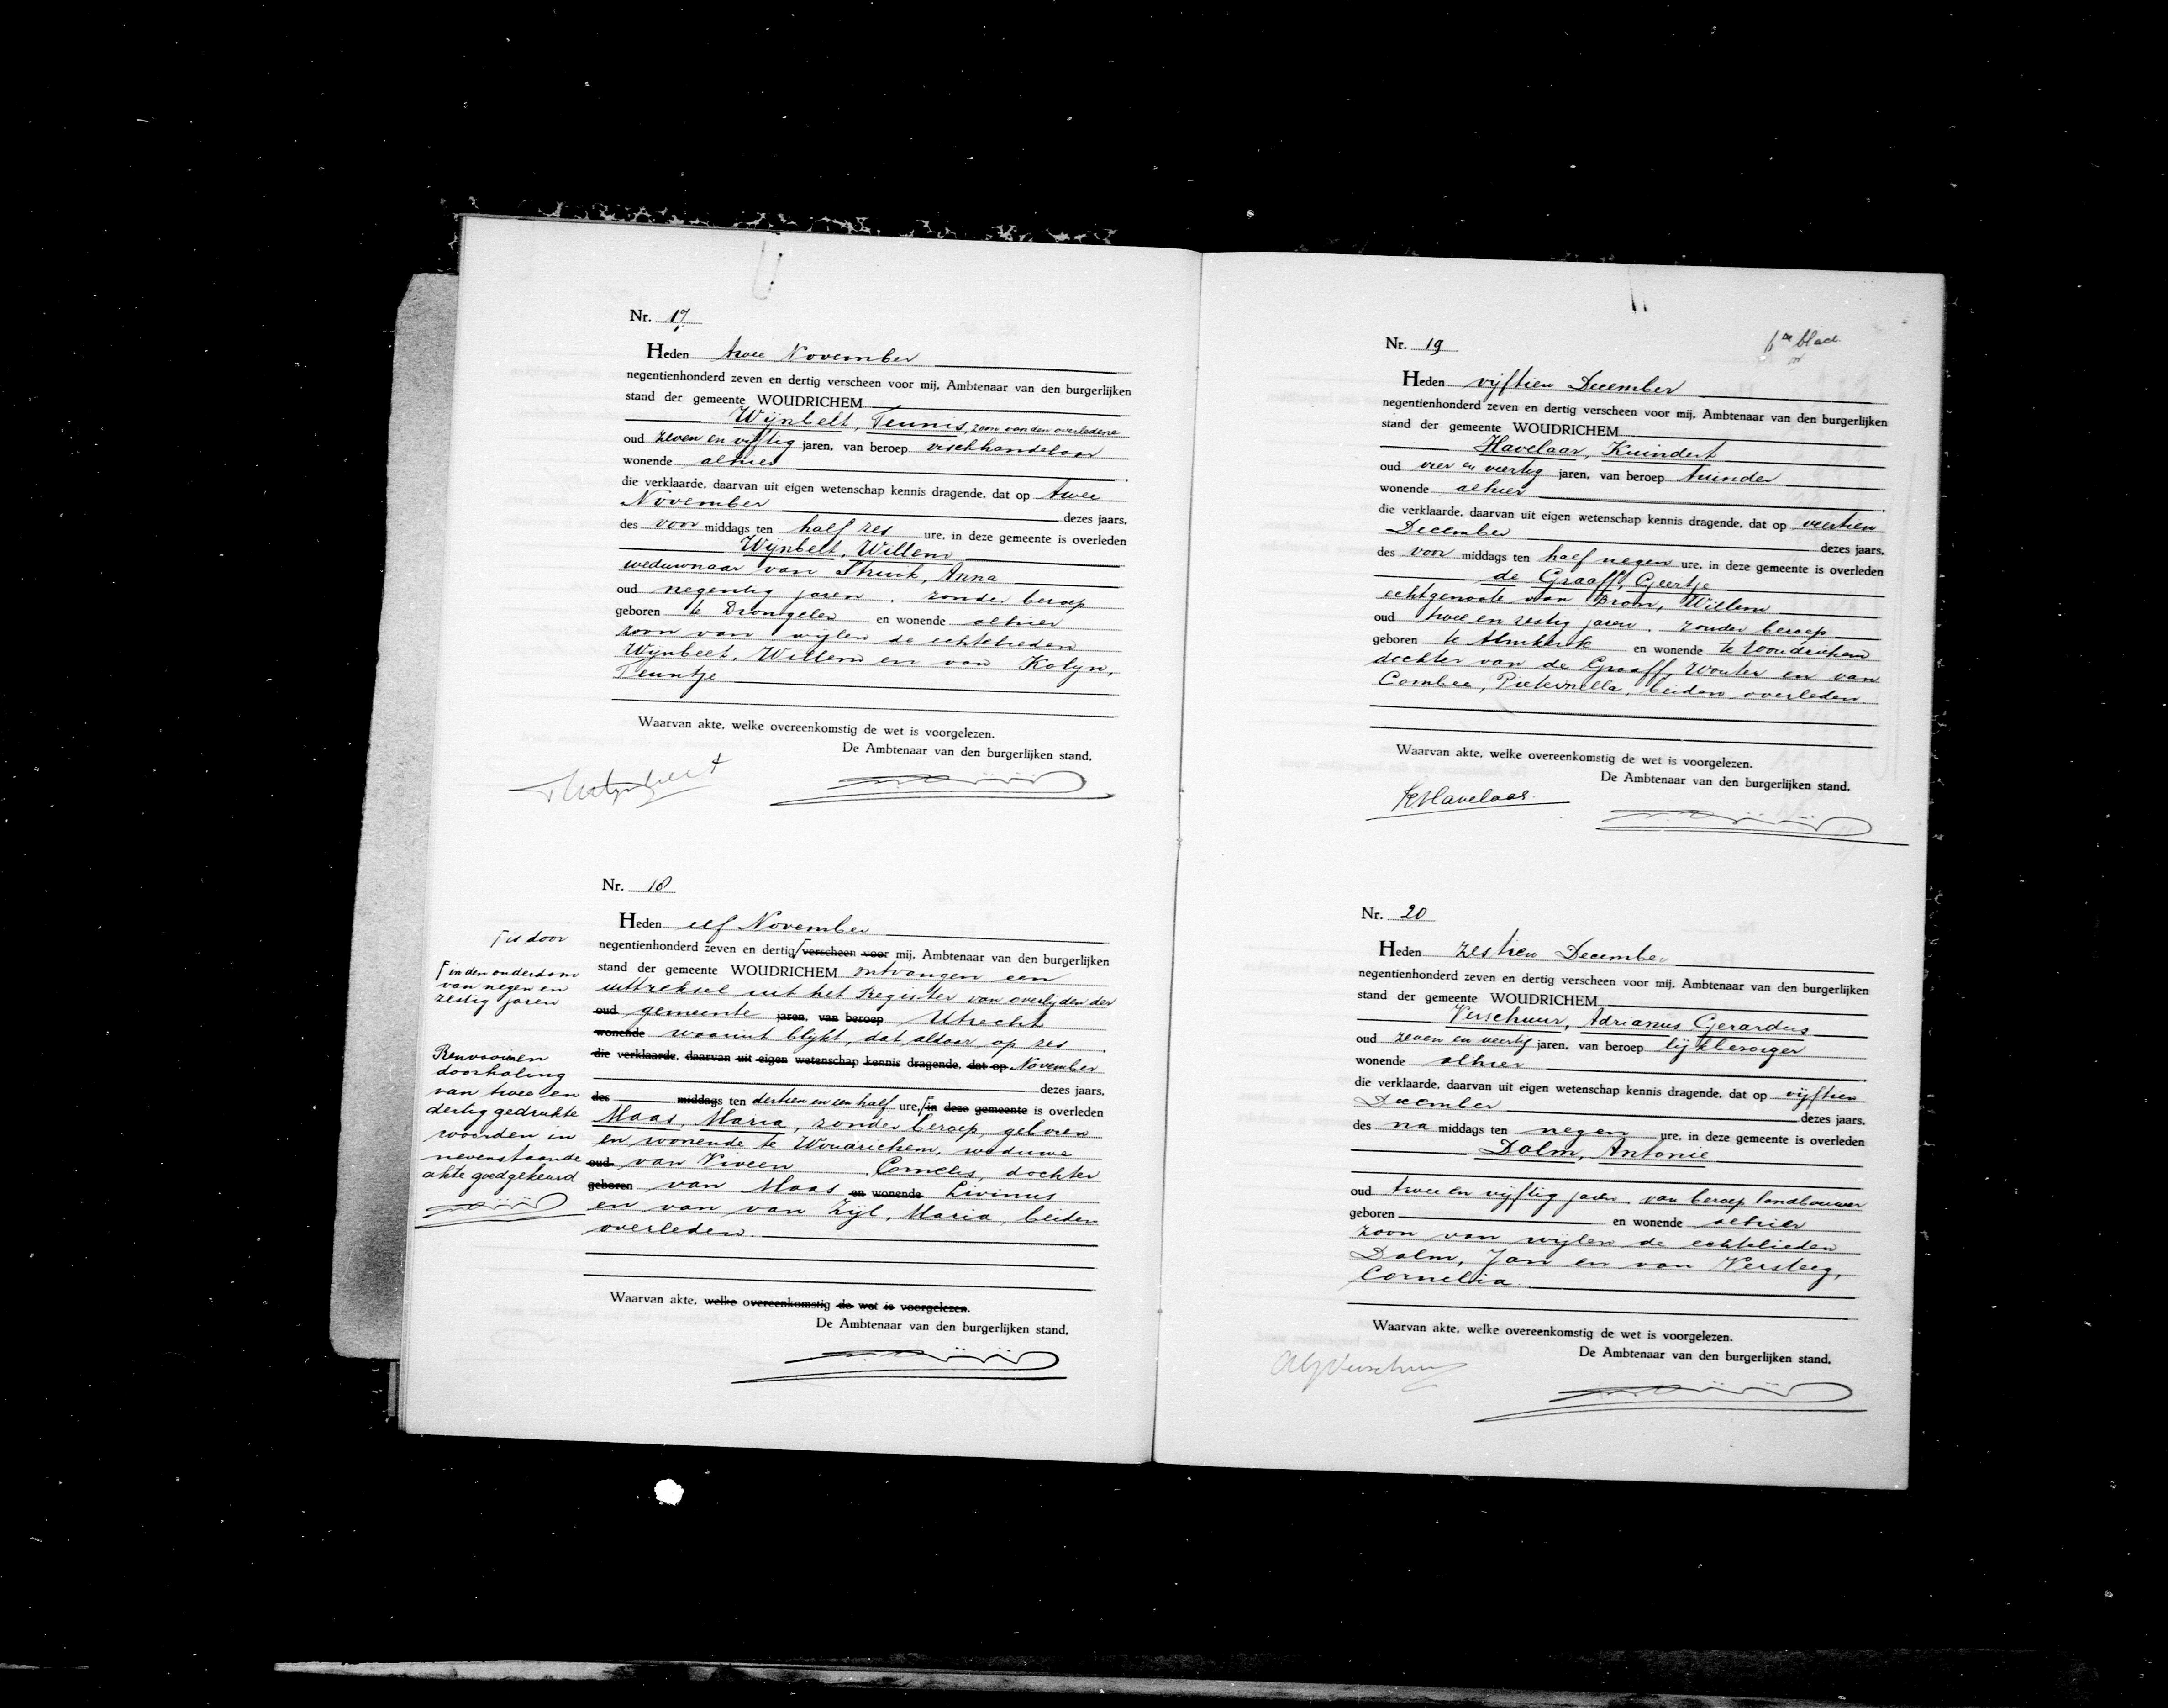 Nr. 17
Heden twee November
negentienhonderd zeven en dertig verscheen voor mij, Ambtenaar van den burgerlijken
stand der gemeente WOUDRICHEM
Wijnbelt, Teunis, zoon van den overledene
oud zeven en vijftig jaren, van beroep vischhandelaar
wonende alhier
die verklaarde, daarvan uit eigen wetenschap kennis dragende, dat op twee
November dezes jaars,
des voor middags ten half zes ure, in deze gemeente is overleden
Wijnbelt, Willem
weduwnaar van Struik, Anna
oud negentig jaren, zonder beroep
geboren te Drongelen en wonende alhier
zoon van wijlen de echtelieden
Wijnbelt, Willem en van Kolyn,
Teuntje
Waarvan akte, welke overeenkomstig de wet is voorgelezen.
De Ambtenaar van den burgerlijken stand,
T Wijnbelt
Nr. 18
Heden elf November
negentienhonderd zeven en dertig ⌈verscheen voor mij, Ambtenaar van den burgerlijken
stand der gemeente WOUDRICHEM ontvangen een
uittreksel uit het Register van overlijden der
oud gemeente jaren, van beroep Utrecht
wonende waaruit blijkt, dat aldaar op zes
die verklaarde, daarvan uit eigen wetenschap kennis dragende, dat op November
dezes jaars,
des middags ten dertien en een half ure, ⌈in deze gemeente is overleden
Maas, Maria, zonder beroep, geboren
en wonende te Woudrichem, weduwe
oud van Viveen Cornelis, dochter
geboren van Maas en wonende Livinus
en van van Zijl, Maria, beiden
overleden.
Waarvan akte, welke overeenkomstig de wet is voorgelezen.
De Ambtenaar van den burgerlijken stand,
⌈is door
⌈in den ouderdom
van negen en
zestig jaren
Renvooien en
doorhaling
van twee en
dertig gedrukte
woorden in
nevenstaande
akte goedgekeurd
Nr. 19
blad
Heden vijftien December
negentienhonderd zeven en dertig verscheen voor mij, Ambtenaar van den burgerlijken
stand der gemeente WOUDRICHEM
Havelaar, Kuindert
oud vier en veertig jaren, van beroep tuinder
wonende alhier
die verklaarde, daarvan uit eigen wetenschap kennis dragende, dat op veertien
December dezes jaars,
des voor middags ten half negen ure, in deze gemeente is overleden
de Graaff, Geertje
echtgenoote van Bron, Willem
oud twee en zestig jaren, zonder beroep
geboren te Almkerk en wonende te Woudrichem
dochter van de Graaff, Wouter en van
Combee, Pieternella, beiden overleden
Waarvan akte, welke overeenkomstig de wet is voorgelezen.
De Ambtenaar van den burgerlijken stand,
K Havelaar
Nr. 20
Heden zestien December
negentienhonderd zeven en dertig verscheen voor mij, Ambtenaar van den burgerlijken
stand der gemeente WOUDRICHEM
Verschuur, Adrianus Gerardus
oud zeven en veertig jaren, van beroep lijkbezorger
wonende alhier
die verklaarde, daarvan uit eigen wetenschap kennis dragende, dat op vijftien
December dezes jaars,
des na middags ten negen ure, in deze gemeente is overleden
Dalm, Antonie
oud twee en vijftig jaren, van beroep landbouwer
geboren en wonende alhier
zoon van wijlen de echtelieden
Dalm, Jan en van Versteeg,
Cornelia.
Waarvan akte, welke overeenkomstig de wet is voorgelezen.
De Ambtenaar van den burgerlijken stand,
AG Verschuur